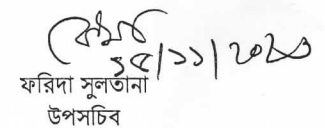 ১৫/১১/২০২৩
ফরিদা সুলতানা
উপসচিব